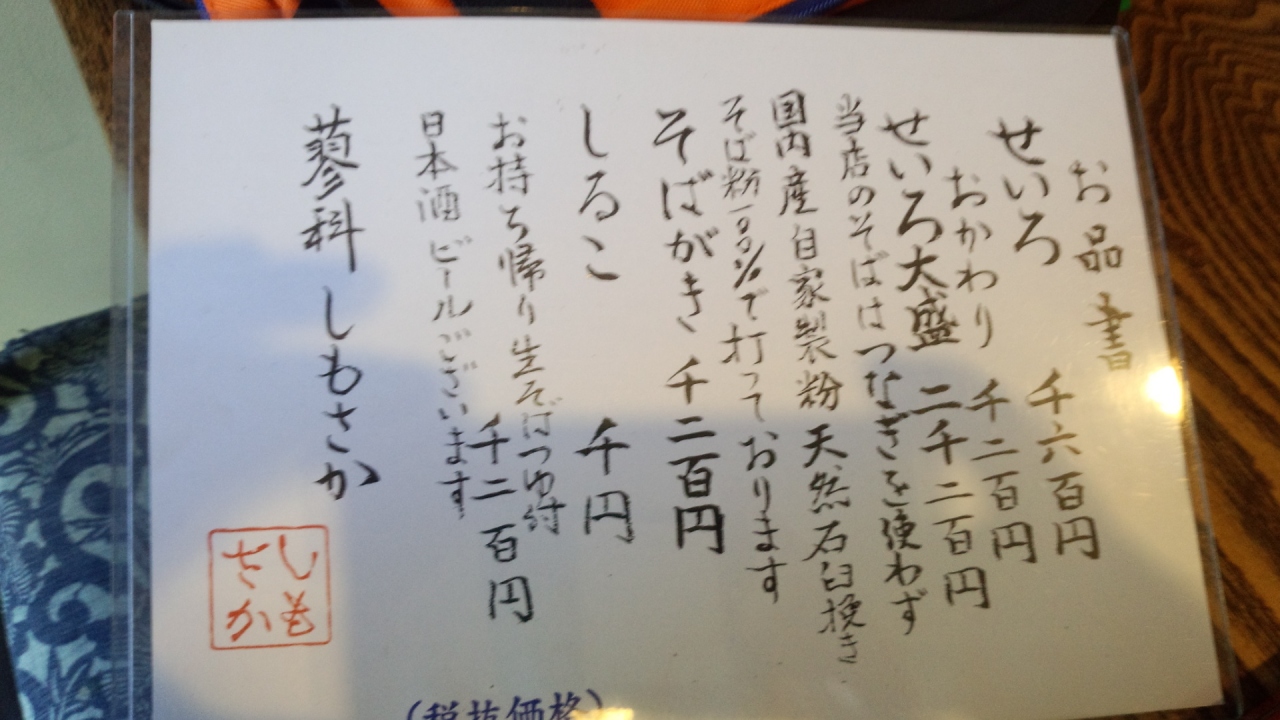 お品書
せいろ 千六百円
おかわり 千二百円
せいろ大盛 二千二百円
当店のそばはつなぎを使わず
国内産自家製粉 天然石臼挽き
そば粉一〇〇%で打っております
そばがき 千二百円
しるこ 千円
お持ち帰り生そばつゆ付
千二百円
日本酒 ビールございます
蓼科 しもさか
しも
さか
(税抜価格)